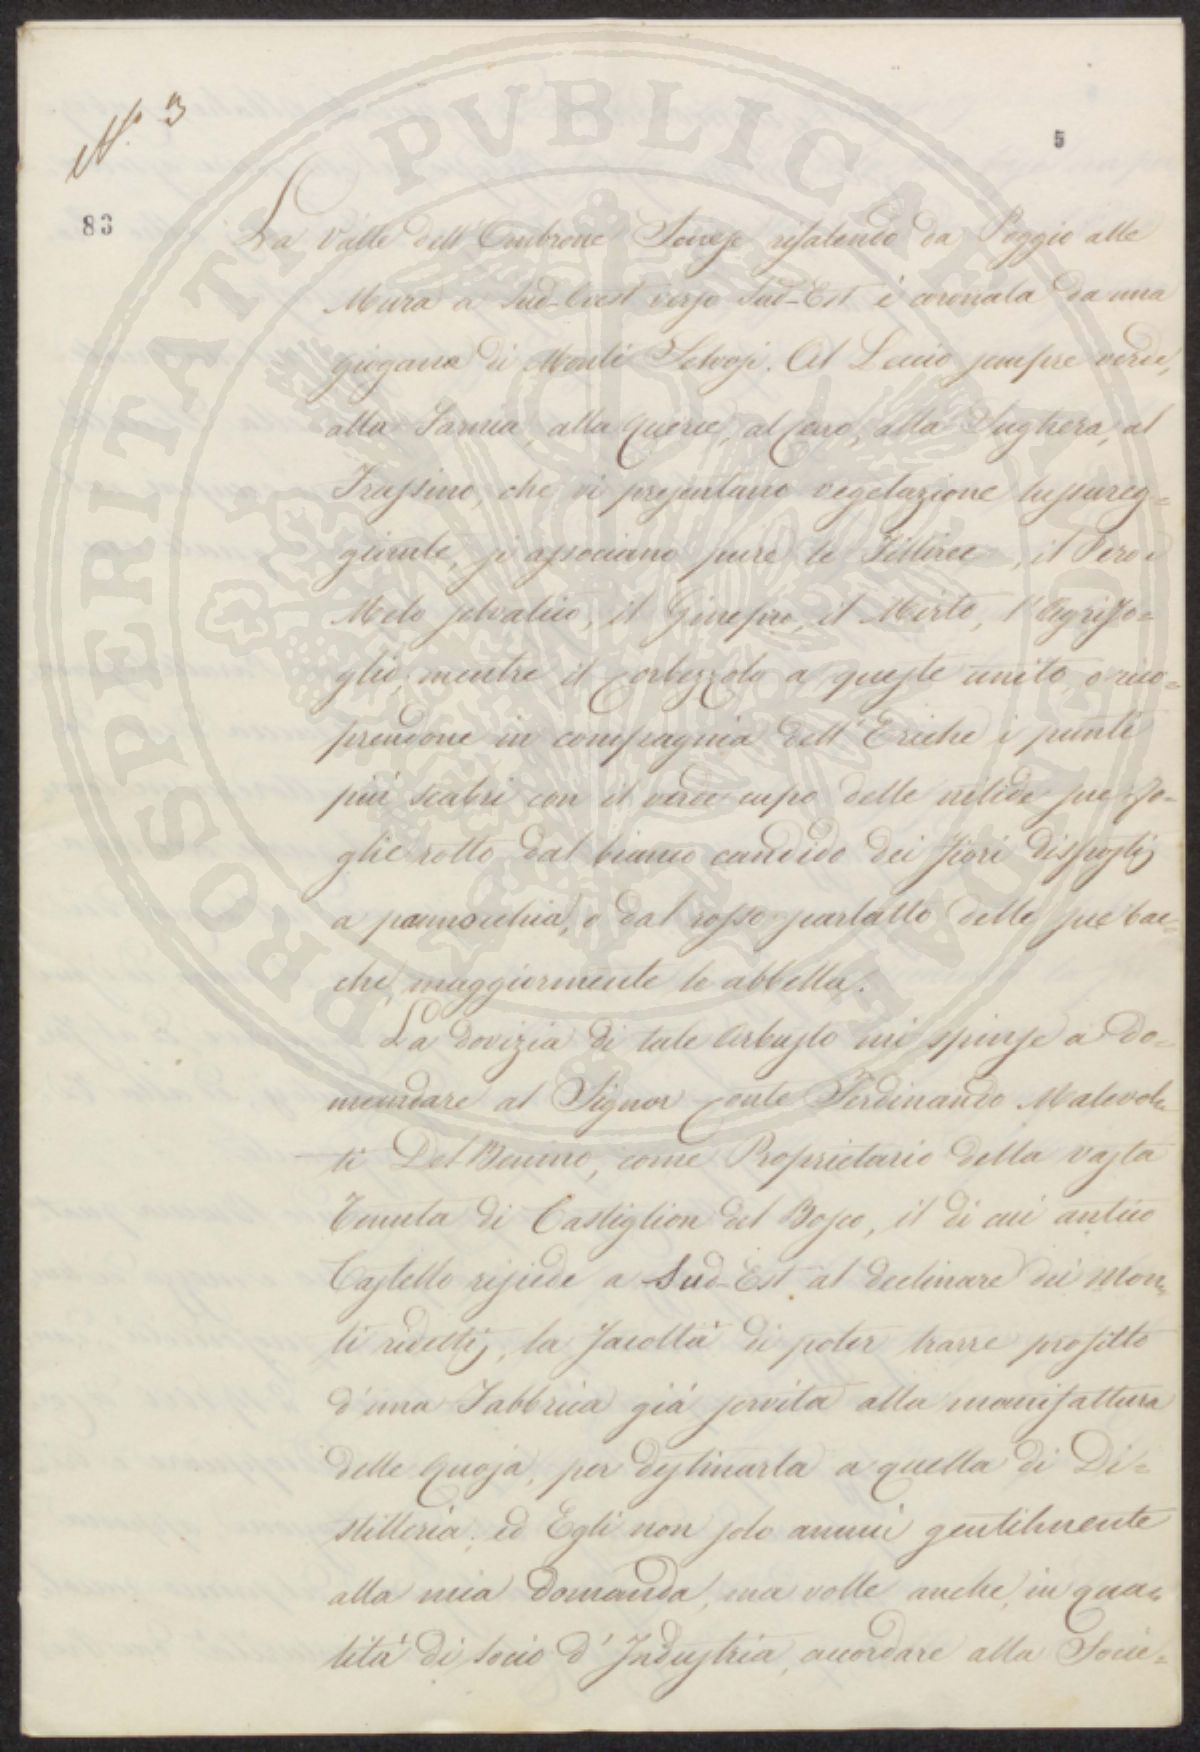 N.° 3
5
83
La Valle dell'Ombrone Senese risalendo da Poggio alle
Mura a Sud-Ovest verso Sud-Est è coronata da una
giogana di Monti Selvosi. Al Leccio sempre verde,
alla Farnia, alla Querce, al Cerro, alla Sughera, al
Frassino, che vi presentano vegetazione lussureg=
giante, si associano pure le Filliree, il Pero e
Melo selvatico, il Ginepro, il Mirto, l'Agrifo=
glio, mentre il Corbezzolo a queste unito, o rico=
prendone in compagnia dell'Eriche i punti
più scabri con il verde cupo delle nitide sue fo=
glie rotto dal bianco candido dei fiori disposti
a pannocchia, o dal rosso scarlatto delle sue bac=
che, maggiormente le abbella.
La dovizia di tale Arbusto mi spinse a do=
mandare al Signor Conte Ferdinando Malevol=
ti Del Benino, come Proprietario della vasta
Tenuta di Castiglion del Bosco, il di cui antico
Castello risiede a Sud-Est al declinare dei Mon=
ti redetti, la facoltà di poter trarre profitto
d'una Fabbrica già servita alla manifattura
delle Quoja, per destinarla a quella di Di=
stilleria; ed Egli non solo annuì gentilmente
alla mia domanda, ma volle anche, in qua=
lità di Socio d'Industria, accordare alla Socie=
PROSPERITATI PVBLICAE AVGENDAE